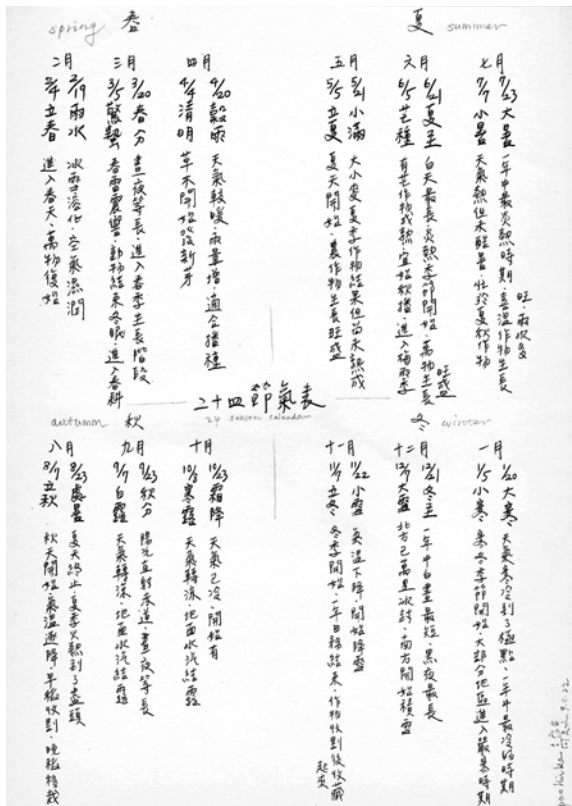 spring 春
二月
2/4 立春 進入春天、萬物復始
2/19 雨水 冰雪溶化、空氣濕潤
三月
3/5 驚蟄 春雷震響、動物結束冬眠、進入春耕
3/20 春分 晝夜等長、進入春季生長階段
四月
4/4 清明 草木開始發新芽
4/20 穀雨 天氣較暖、雨量增、適合播種
夏 summer
五月
5/5 立夏 夏天開始、農作物生長旺盛
5/21 小滿 大小麥夏季作物結果但尚未熟成
六月
6/5 芒種 有芒作物成熟、宜始秋播、進入梅雨季
6/21 夏至 白天最長、炎熱季節開始、萬物生長旺盛
七月
7/7 小暑 天氣熱但未酷暑、忙於夏秋作物
7/23 大暑 一年中最炎熱時期、喜溫作物生長旺、雨水多
二十四節氣表
24 season calendar
autumn 秋
八月
8/7 立秋 秋天開始、氣溫逐降、早稻收割、晚稻移栽
8/23 處暑 夏天終止、夏季火熱到了盡頭
九月
9/7 白露 天氣轉涼、地面水汽結露
9/23 秋分 陽光直射赤道、晝夜等長
十月
10/8 寒露 天氣轉涼、地面水汽結露
10/23 霜降 天氣已冷、開始有
冬 winter
十一月
11/7 立冬 冬季開始、一年田稼結束、作物收割後收藏起來
11/22 小雪 氣溫下降、開始降雪
十二月
12/7 大雪 北方已萬里冰封、南方開始積雪
12/21 冬至 一年中白晝最短、黑夜最長
一月
1/5 小寒 寒冬季節開始、大部分地區進入嚴寒時期
1/20 大寒 天氣寒冷到了極點、一年中最冷的時期